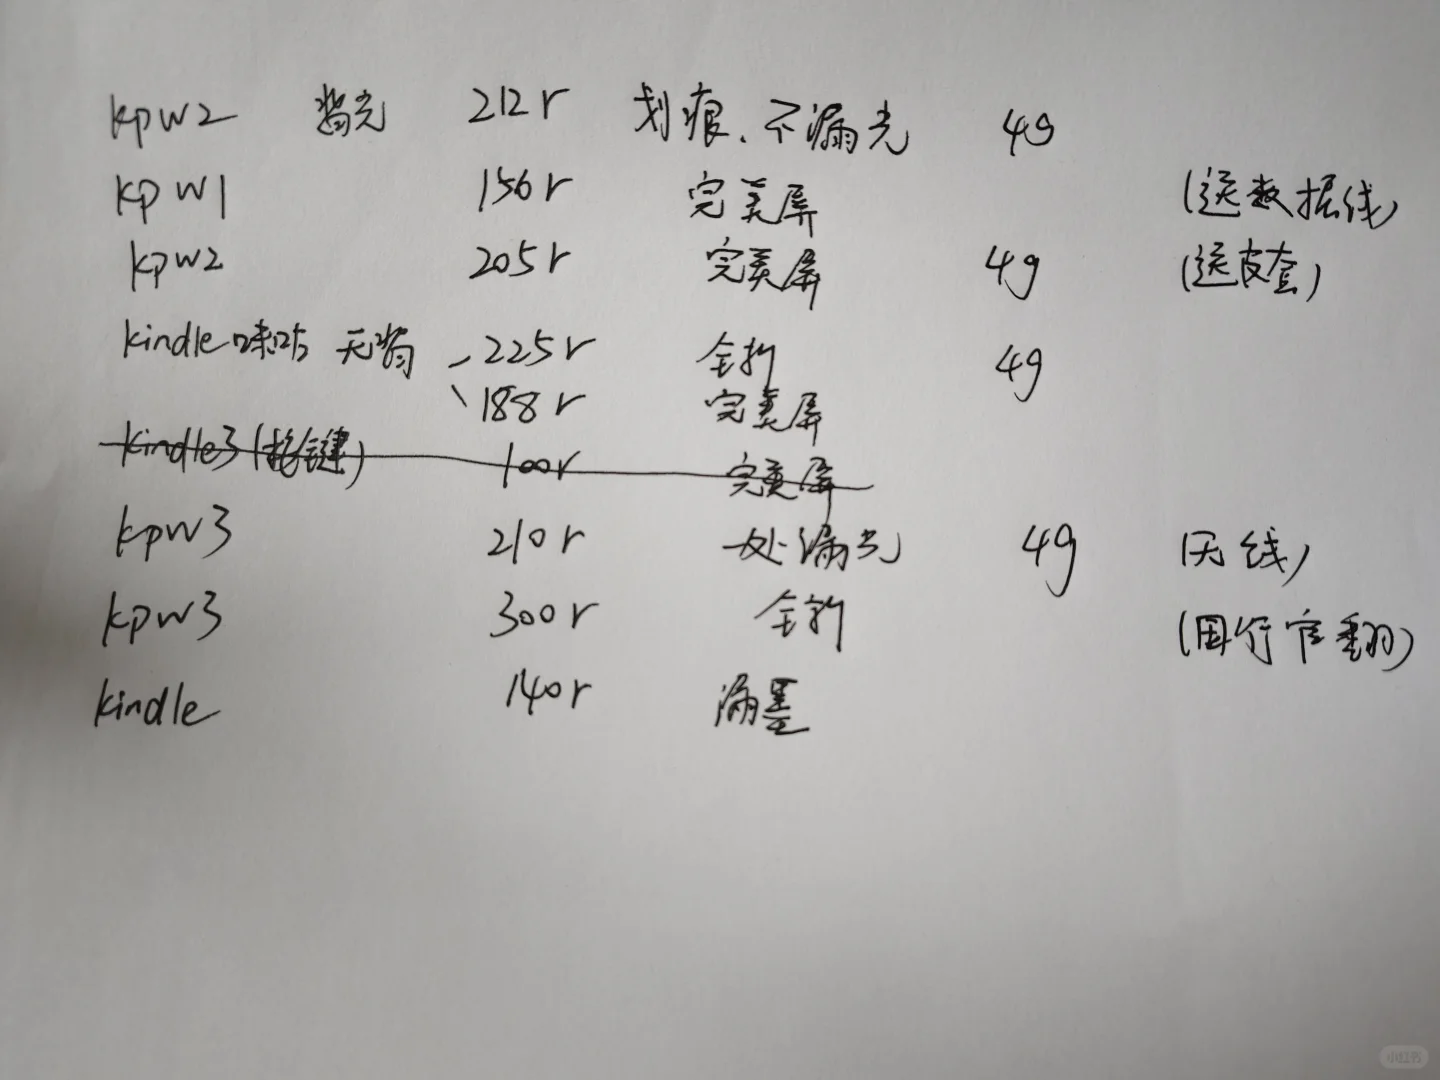 kpw2 背光 212r 划痕、不漏光 4g
kpw1 156r 完美屏 (送数据线)
kpw2 205r 完美屏 4g (送皮套)
kindle咪咕 无背 225r 全新 4g
188r 完美屏
kindle3 (按键) 100r 完美屏
kpw3 210r 一处漏光 4g (无线)
kpw3 300r 全新 (国行官翻)
kindle 140r 漏墨
小红书